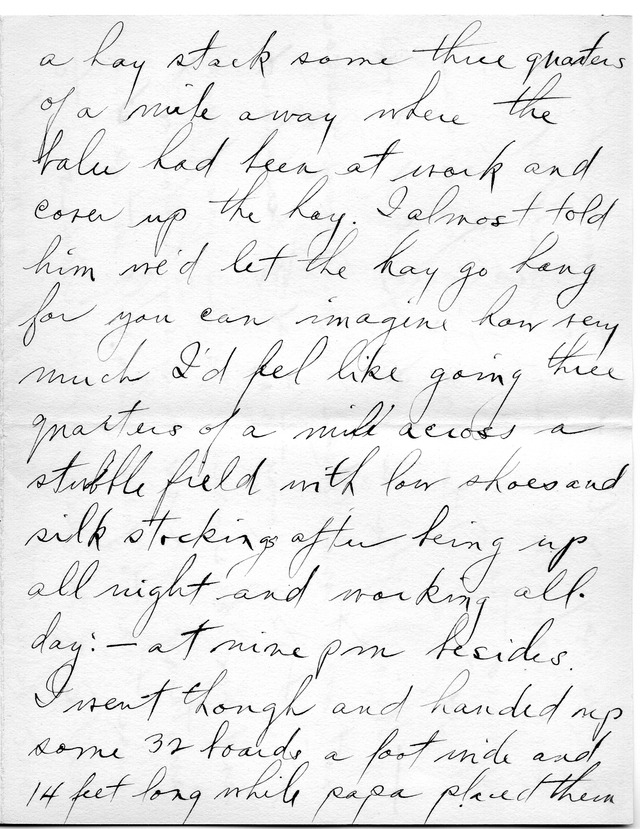 a hay stack some three quarters
of a mile away where the
baler had been at work and
cover up the hay. I almost told
him we'd let the hay go hang
for you can imagine how very
much I'd feel like going three
quarters of a mile across a
stubble field with low shoes and
silk stockings after being up
all night and working all
day: — at nine pm besides.
I went though and handed up
some 32 boards a foot wide and
14 feet long while papa placed them